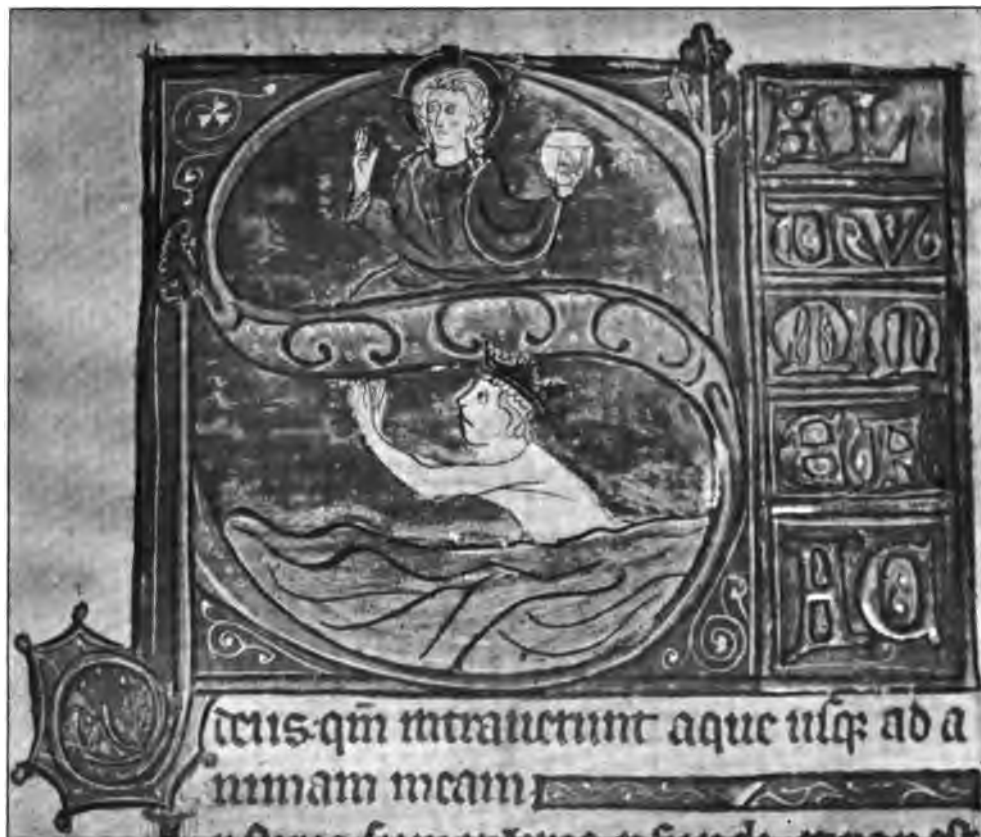 S AL
UV
M M
E F
A C
deus·qm̄ intrauerunt aque usq; ad a
nimam meam